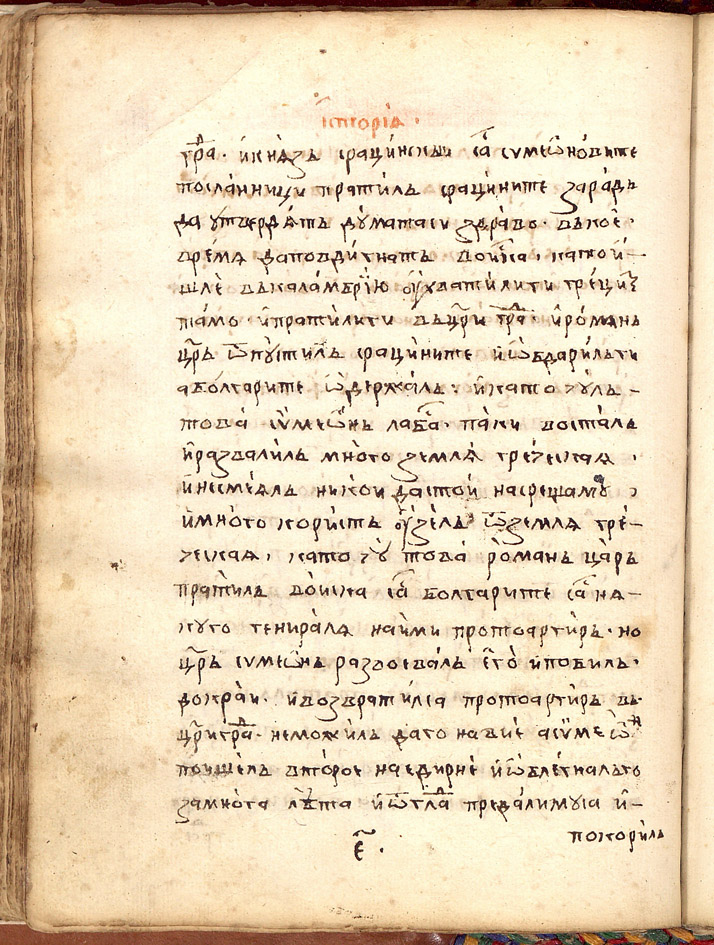 їсторїѧ ·
гра̑д · и҆ кнѧзь срацинскїи са̑ сѵмеѡ҆новите
посланници пратилъ срацините заради
да утвердѧтъ думата си здраво · въ кое
времѧ заповдигнатъ воиска , като и҆ –
шлѐ въ каламбрїю ѹ҆хватили ги грецы̀
тамо · и҆ пратили ги въ цр҃и гра̑д · и҆ романъ
цр҃ь ѿпустилъ срацините и҆ ѡ҆бдарилъ ги
а болгарите ѡ҆держалъ · и҆ като чулъ –
това сѵмеѡ҆нъ лабас · паки восталъ
и҆ развалилъ много землѧ греческаѧ ,
и҆ не смеѧлъ никои да стои на срещамꙋ ,
и҆ много користъ ѹ҆зелъ ѿ землѧ гре –
ческаѧ , като чꙋ това романъ царь
пратилъ воиска са̑ болгарите са̑ нѧ –
куго генералѧ на име протоартиръ · но
цр҃ъ сѵмеѡ҆нъ развоевалъ его̀ и҆ повилъ ·
до краи · и҆ возвратилсѧ протоартиръ въ
цр҃и гра̑д · не можилъ да го навие а сѵмеѡ҆н
пошелъ второе на едирне и҆ ѡ҆блегналъ го
за многа лѣта и҆ ѿ гла̑д предалимусѧ и҆ –
покорилъ
є҃ ·